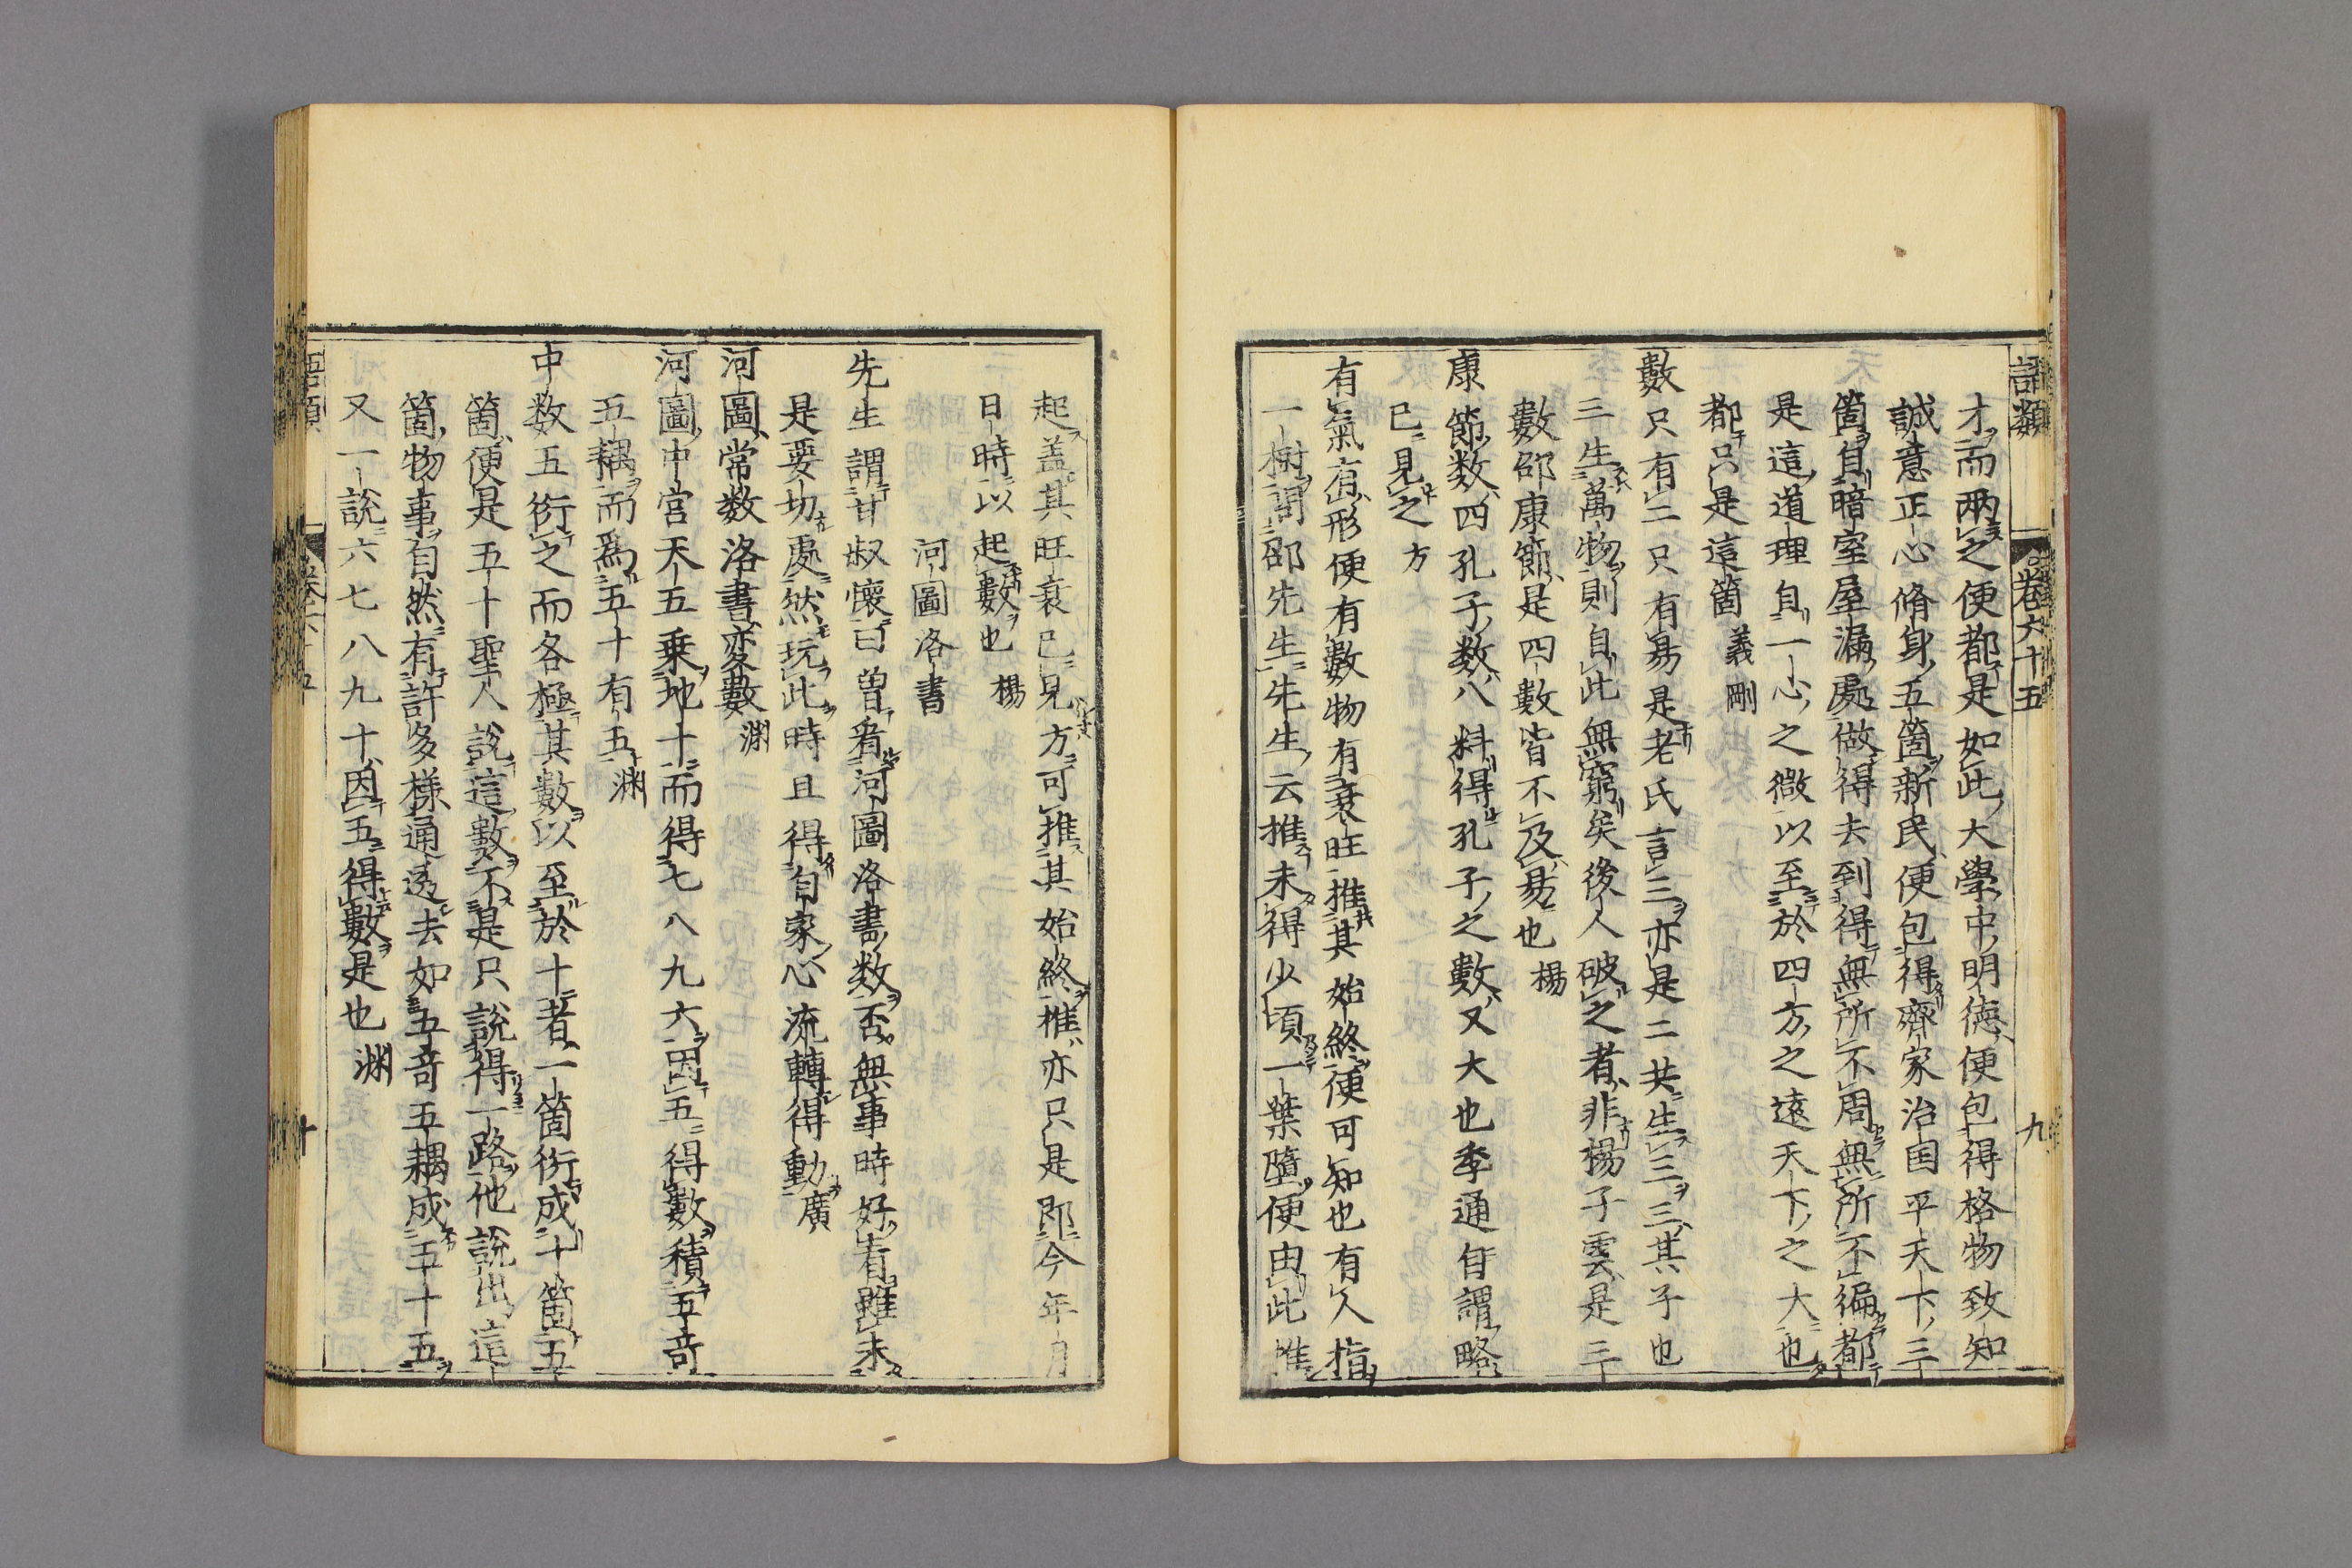 語類 卷六十五 九
才而兩之便都是如此大學中明德便包得格物致知
誠意正心脩身五箇新民便包得齊家治国平天下三
箇自暗室屋漏處做得去到得無所不周無所不徧都
是這道理自一心之微以至於四方之遠天下之大也
都只是這箇 義剛
數只有二只有易是老氏言三亦是二共生三三其子也
三生萬物則自此無窮矣後人破之者非楊子雲是三
數邵康節是四數皆不及易也 楊
康節数四孔子数八料得孔子之數又大也季通自謂略
已見之 方
有氣有形便有數物有衰旺推其始終便可知也有人指
一樹問邵先生先生云推未得少頃一葉墮便由此推
起蓋其旺衰已見方可推其始終推亦只是即今年月
日時以起數也 楊
河圖洛書
先生謂甘叔懷曰曽看河圖洛書数否無事時好看雖未
是要切處然玩此時且得自家心流轉得動 廣
河圖常数洛書変數 渊
河圖中宮天五乗地十而得七八九六因五得數積五竒
五耦而爲五十有五 渊
中数五衍之而各極其數以至於十者一箇衍成十箇五
箇便是五十聖人說這數不是只說得一路他說出這
箇物事自然有許多樣通透去如五竒五耦成五十五
又一說六七八九十因五得數是也 渊
語類 卷六十五 十